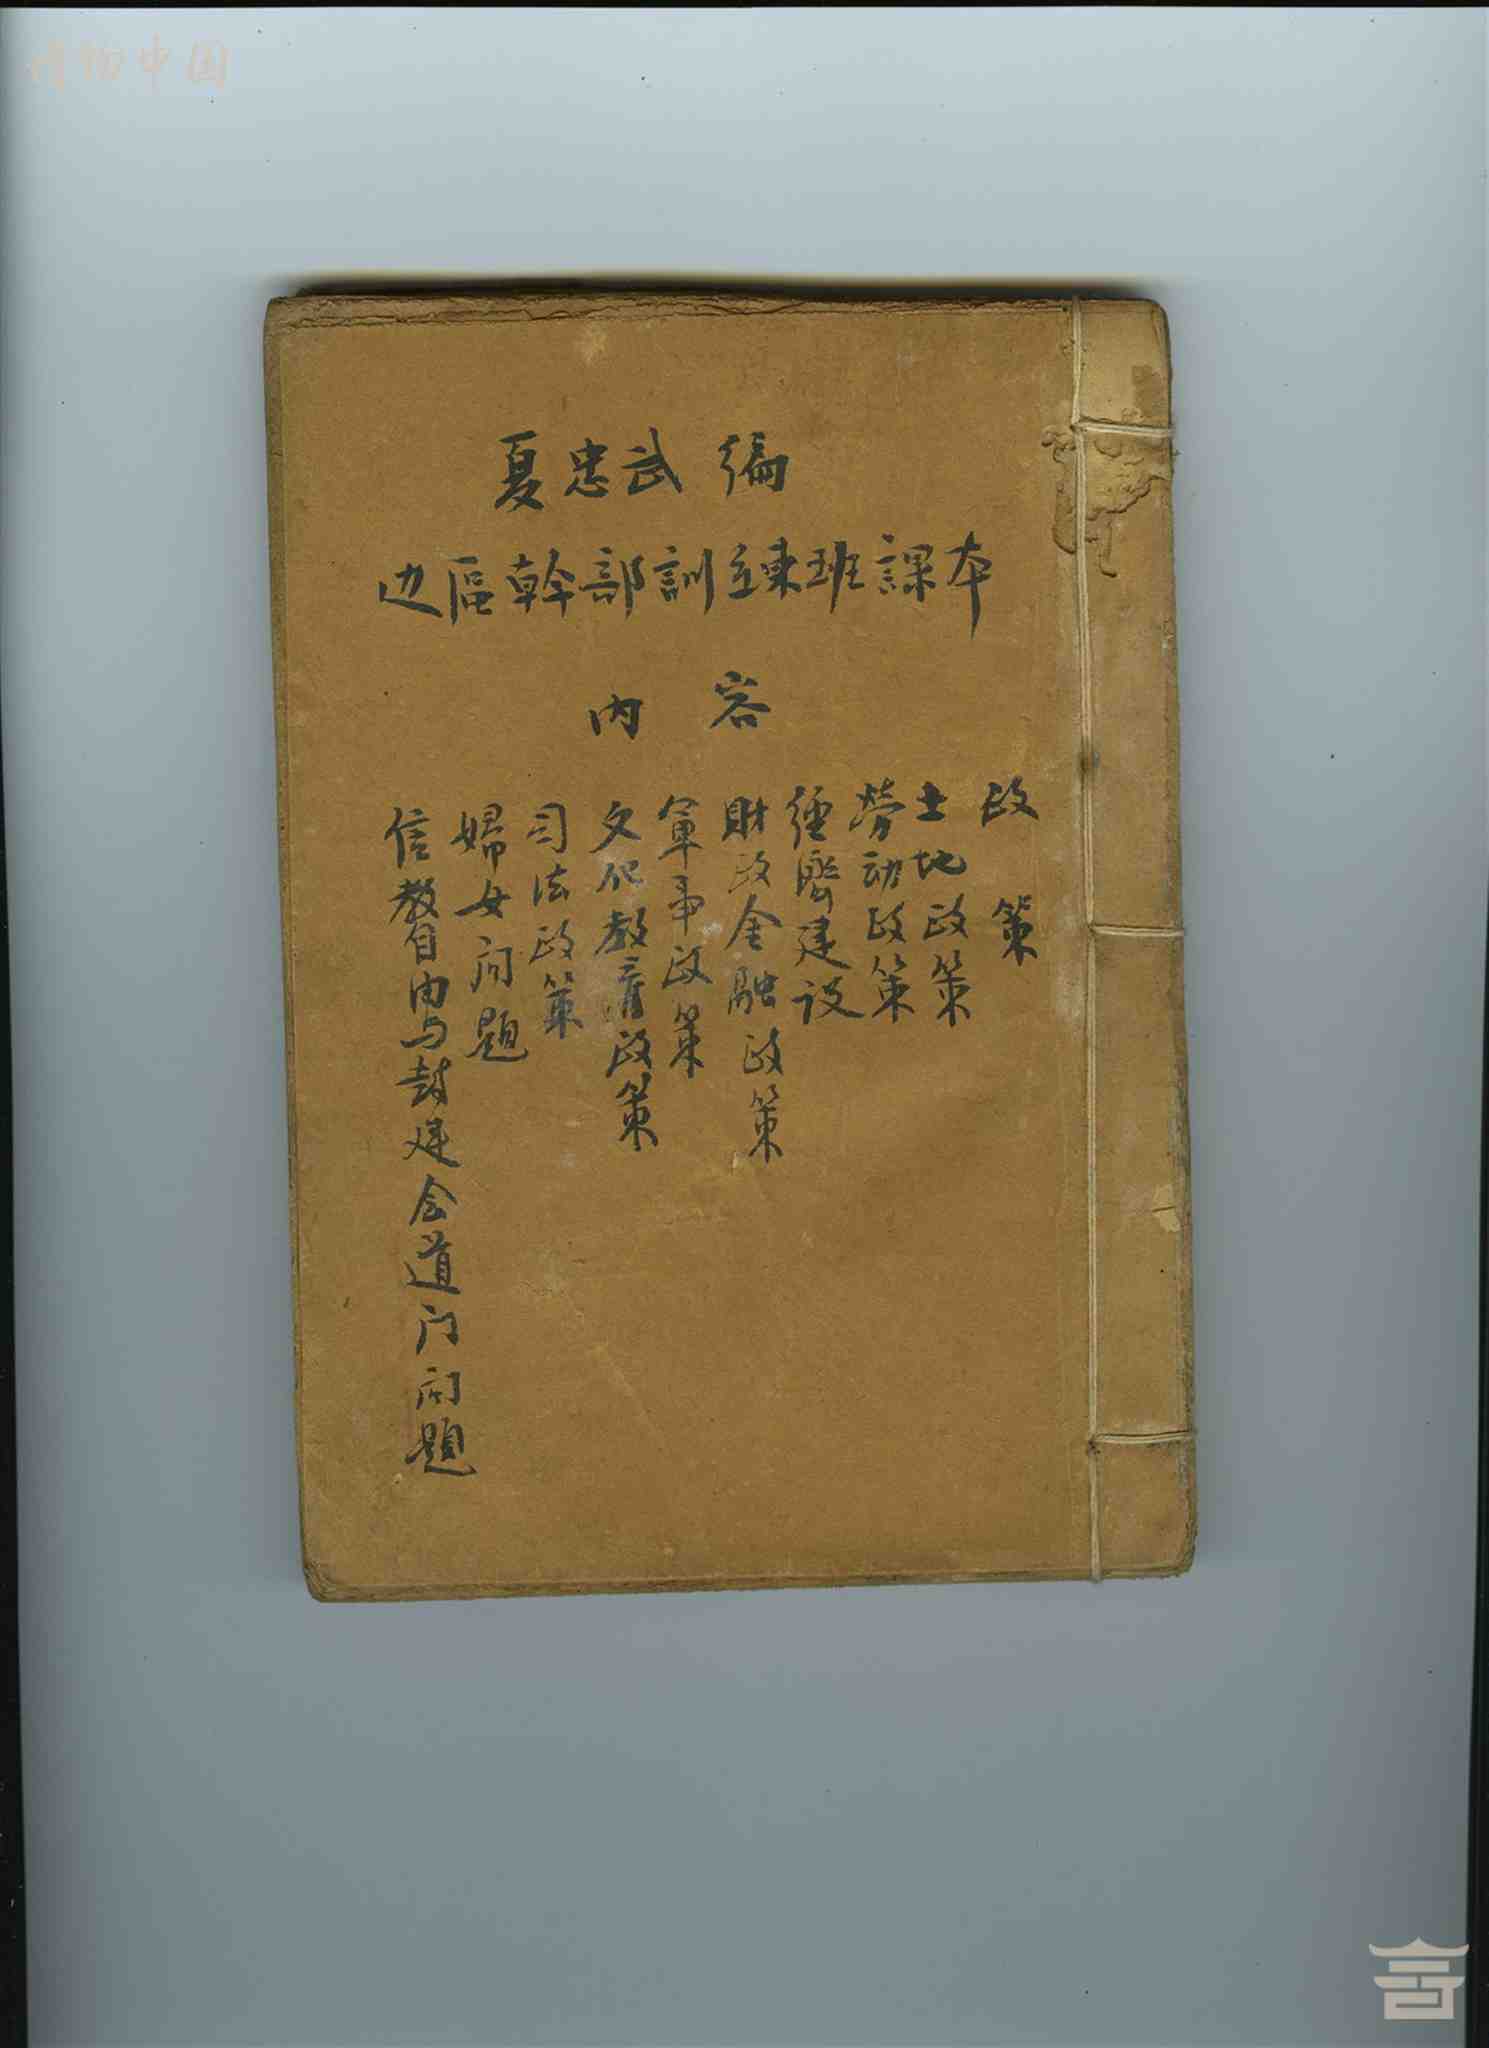 博物中国
夏忠武 编
边區幹部訓練班課本
内 容
政 策
土地政策
勞动政策
經濟建设
財政金融政策
軍事政策
文化教育政策
司法政策
婦女问題
信教自由与封建会道门问題